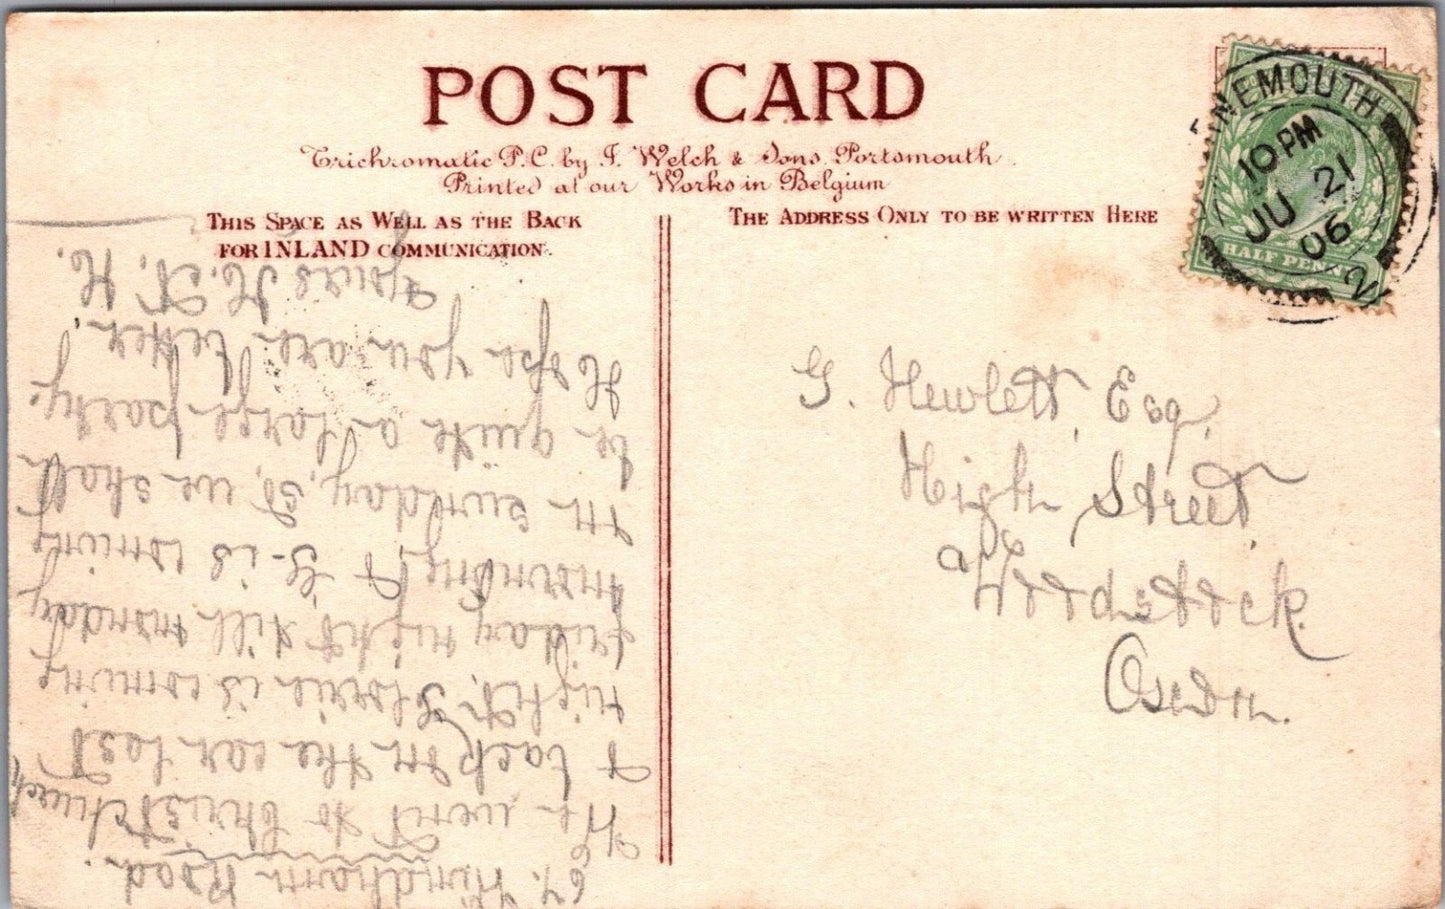 POST CARD
Trichromatic P.C. by J. Welch & Sons Portsmouth
Printed at our Works in Belgium
THIS SPACE AS WELL AS THE BACK
FOR INLAND COMMUNICATION.
THE ADDRESS ONLY TO BE WRITTEN HERE
NEMOUTH
10 PM
JU 21
06
2
HALF PENNY
G. Hewlett, Esq,
High Street,
Woodstock.
Oxon.
67. Windham Road.
We went to Christchurch
& back on the car last
night. Florrie is coming
friday night till monday
morning & G- is coming
on sunday, so we shall
be quite a large party.
Hope you are better.
Yours H. N. H.